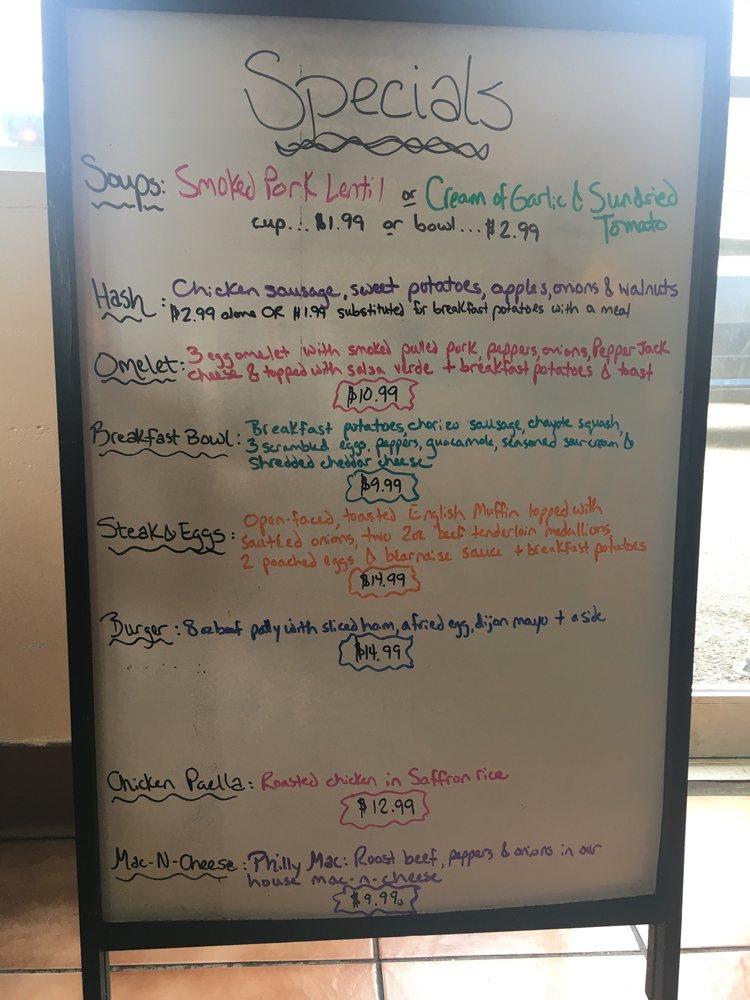 Specials
Soups: Smoked Pork Lentil or Cream of Garlic & Sundried
Tomato
cup... $1.99 or bowl... $2.99
Hash: Chicken sausage, sweet potatoes, apples, onions & walnuts
$2.99 alone OR $1.99 substituted for breakfast potatoes with a meal
Omelet: 3 egg omelet with smoked pulled pork, peppers, onions, Pepper Jack
cheese & topped with salsa verde + breakfast potatoes & toast
$10.99
Breakfast Bowl: Breakfast potatoes, chorizo sausage, chayote squash,
3 scrambled eggs, peppers, guacamole, seasoned sour cream &
shredded cheddar cheese
$9.99
Steak & Eggs: Open-faced, toasted English Muffin topped with
sautéed onions, two 2oz beef tenderloin medallions,
2 poached eggs & béarnaise sauce + breakfast potatoes
$14.99
Burger: 8oz beef patty with sliced ham, a fried egg, dijon mayo + a side
$14.99
Chicken Paella: Roasted chicken in Saffron rice
$12.99
Mac-N-Cheese: Philly Mac: Roast beef, peppers & onions in our
house mac-n-cheese
$9.99